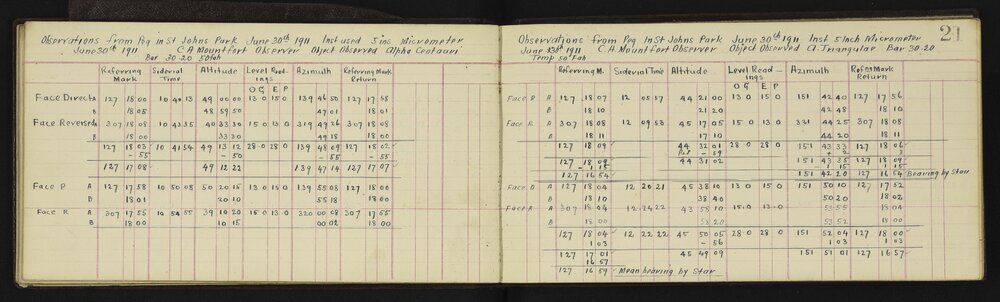 Observations from Peg in St Johns Park June 30th 1911 Inst used 5 ins Micrometer
June 30th 1911 C.A Mountfort Observer Object Observed Alpha Centauri
Bar 30-20 50 fah
Referring Mark Siderial Time Altitude Level Readings Azimuth Referring Mark Return
O G E P
Face Direct A 127 18 00 10 40 13 49 00 00 13 0 15 0 139 46 50 127 17 58
B 18 05 48 59 50 47 01 18 01
Face Reversed A 307 18 08 10 43 35 40 33 30 15 0 13 0 319 49 26 307 18 08
B 18 00 33 30 49 18 18 00
127 18 03 10 41 54 49 13 12 28 0 28 0 139 48 09 127 18 02
- 55 - 50 - 55 - 55
127 17 08 49 12 22 139 47 14 127 17 07
Face D A 127 17 58 10 50 05 50 20 15 13 0 15 0 139 55 08 127 18 00
B 18 01 20 10 55 18 18 00
Face R A 307 17 55 10 54 55 39 10 20 15 0 13 0 320 00 08 307 17 55
B 18 00 10 15 00 02 18 00
21
Observations from Peg In St Johns Park June 30th 1911 Inst 5 Inch Micrometer
June 30th 1911 C.A. Mountfort Observer Object Observed A. Triangulae Bar 30-20
Temp 50° Fah
Referring M. Siderial Time Altitude Level Readings Azimuth Ref'ng Mark Return
O G E P
Face D A 127 18 07 12 05 57 44 21 00 13 0 15 0 151 42 40 127 17 56
B 18 10 21 20 42 48 18 10
Face R A 307 18 08 12 09 53 45 17 05 15 0 13 0 331 44 25 307 18 08
B 18 11 17 10 44 20 18 11
127 18 09 44 32 01 28 0 28 0 151 43 33 127 18 06
- 59
127 18 09 44 31 02 151 43 35 127 18 09
1 15 1 15 1 15
127 16 54 151 42 20 127 16 54 Bearing by Star
Face D A 127 18 04 12 20 21 45 38 10 13 0 15 0 151 50 10 127 17 52
B 18 10 38 40 50 20 18 02
Face R A 307 18 04 12 24 22 43 58 10 15 0 13 0 53 55 18 04
B 18 00 58 20 53 52 18 00
127 18 04 12 22 22 45 50 05 28 0 28 0 151 52 04 127 18 00
1 03 - 56 1 03 1 03
127 17 01 45 49 09 151 51 01 127 16 57
16 57
127 16 59 Mean bearing by Star